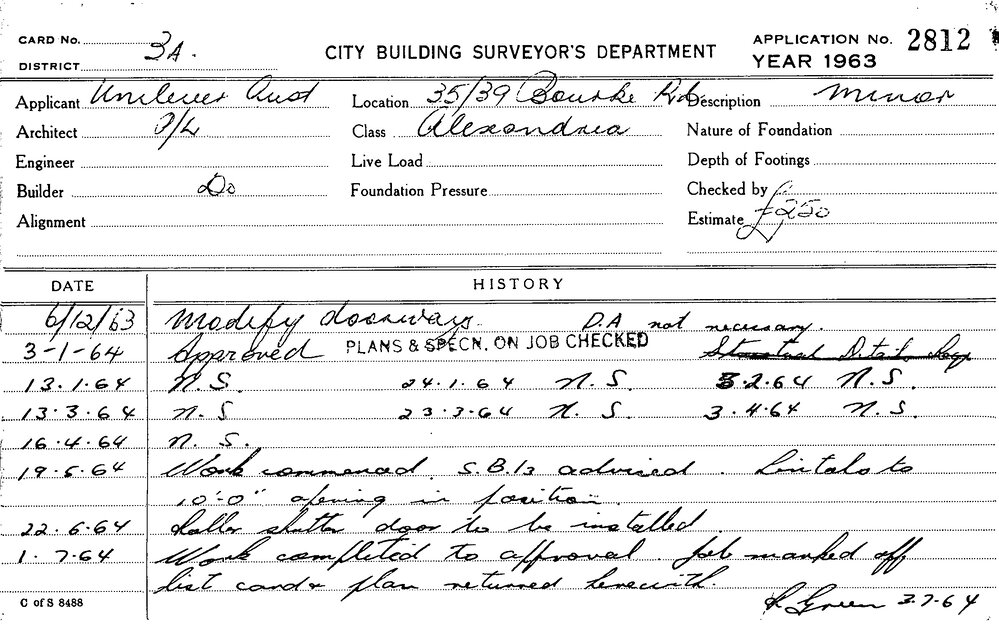 CARD No. 3A.
DISTRICT
CITY BUILDING SURVEYOR'S DEPARTMENT
APPLICATION No. 2812
YEAR 1963
Applicant Unilever Aust Location 35/39 Bourke Rd Description minor
Architect P/L Class Alexandria Nature of Foundation
Engineer Live Load Depth of Footings
Builder Do Foundation Pressure Checked by
Alignment Estimate £250
DATE HISTORY
6/12/63 Modify doorways. D.A not necessary.
3-1-64 Approved PLANS & SPECN. ON JOB CHECKED Structural Details Reqd
13.1.64 N.S. 24.1.64 N.S. 3.2.64 N.S.
13.3.64 N.S 23.3.64 N.S. 3.4.64 N.S.
16.4.64 N.S.
19.5.64 Work commenced. S.B.I's advised. Lintals to
10'-0" opening in position
22.6.64 Roller shutter door to be installed.
1.7.64 Work completed to approval. Job marked off
list card & plan returned herewith.
C of S 8488 Green 3-7-64